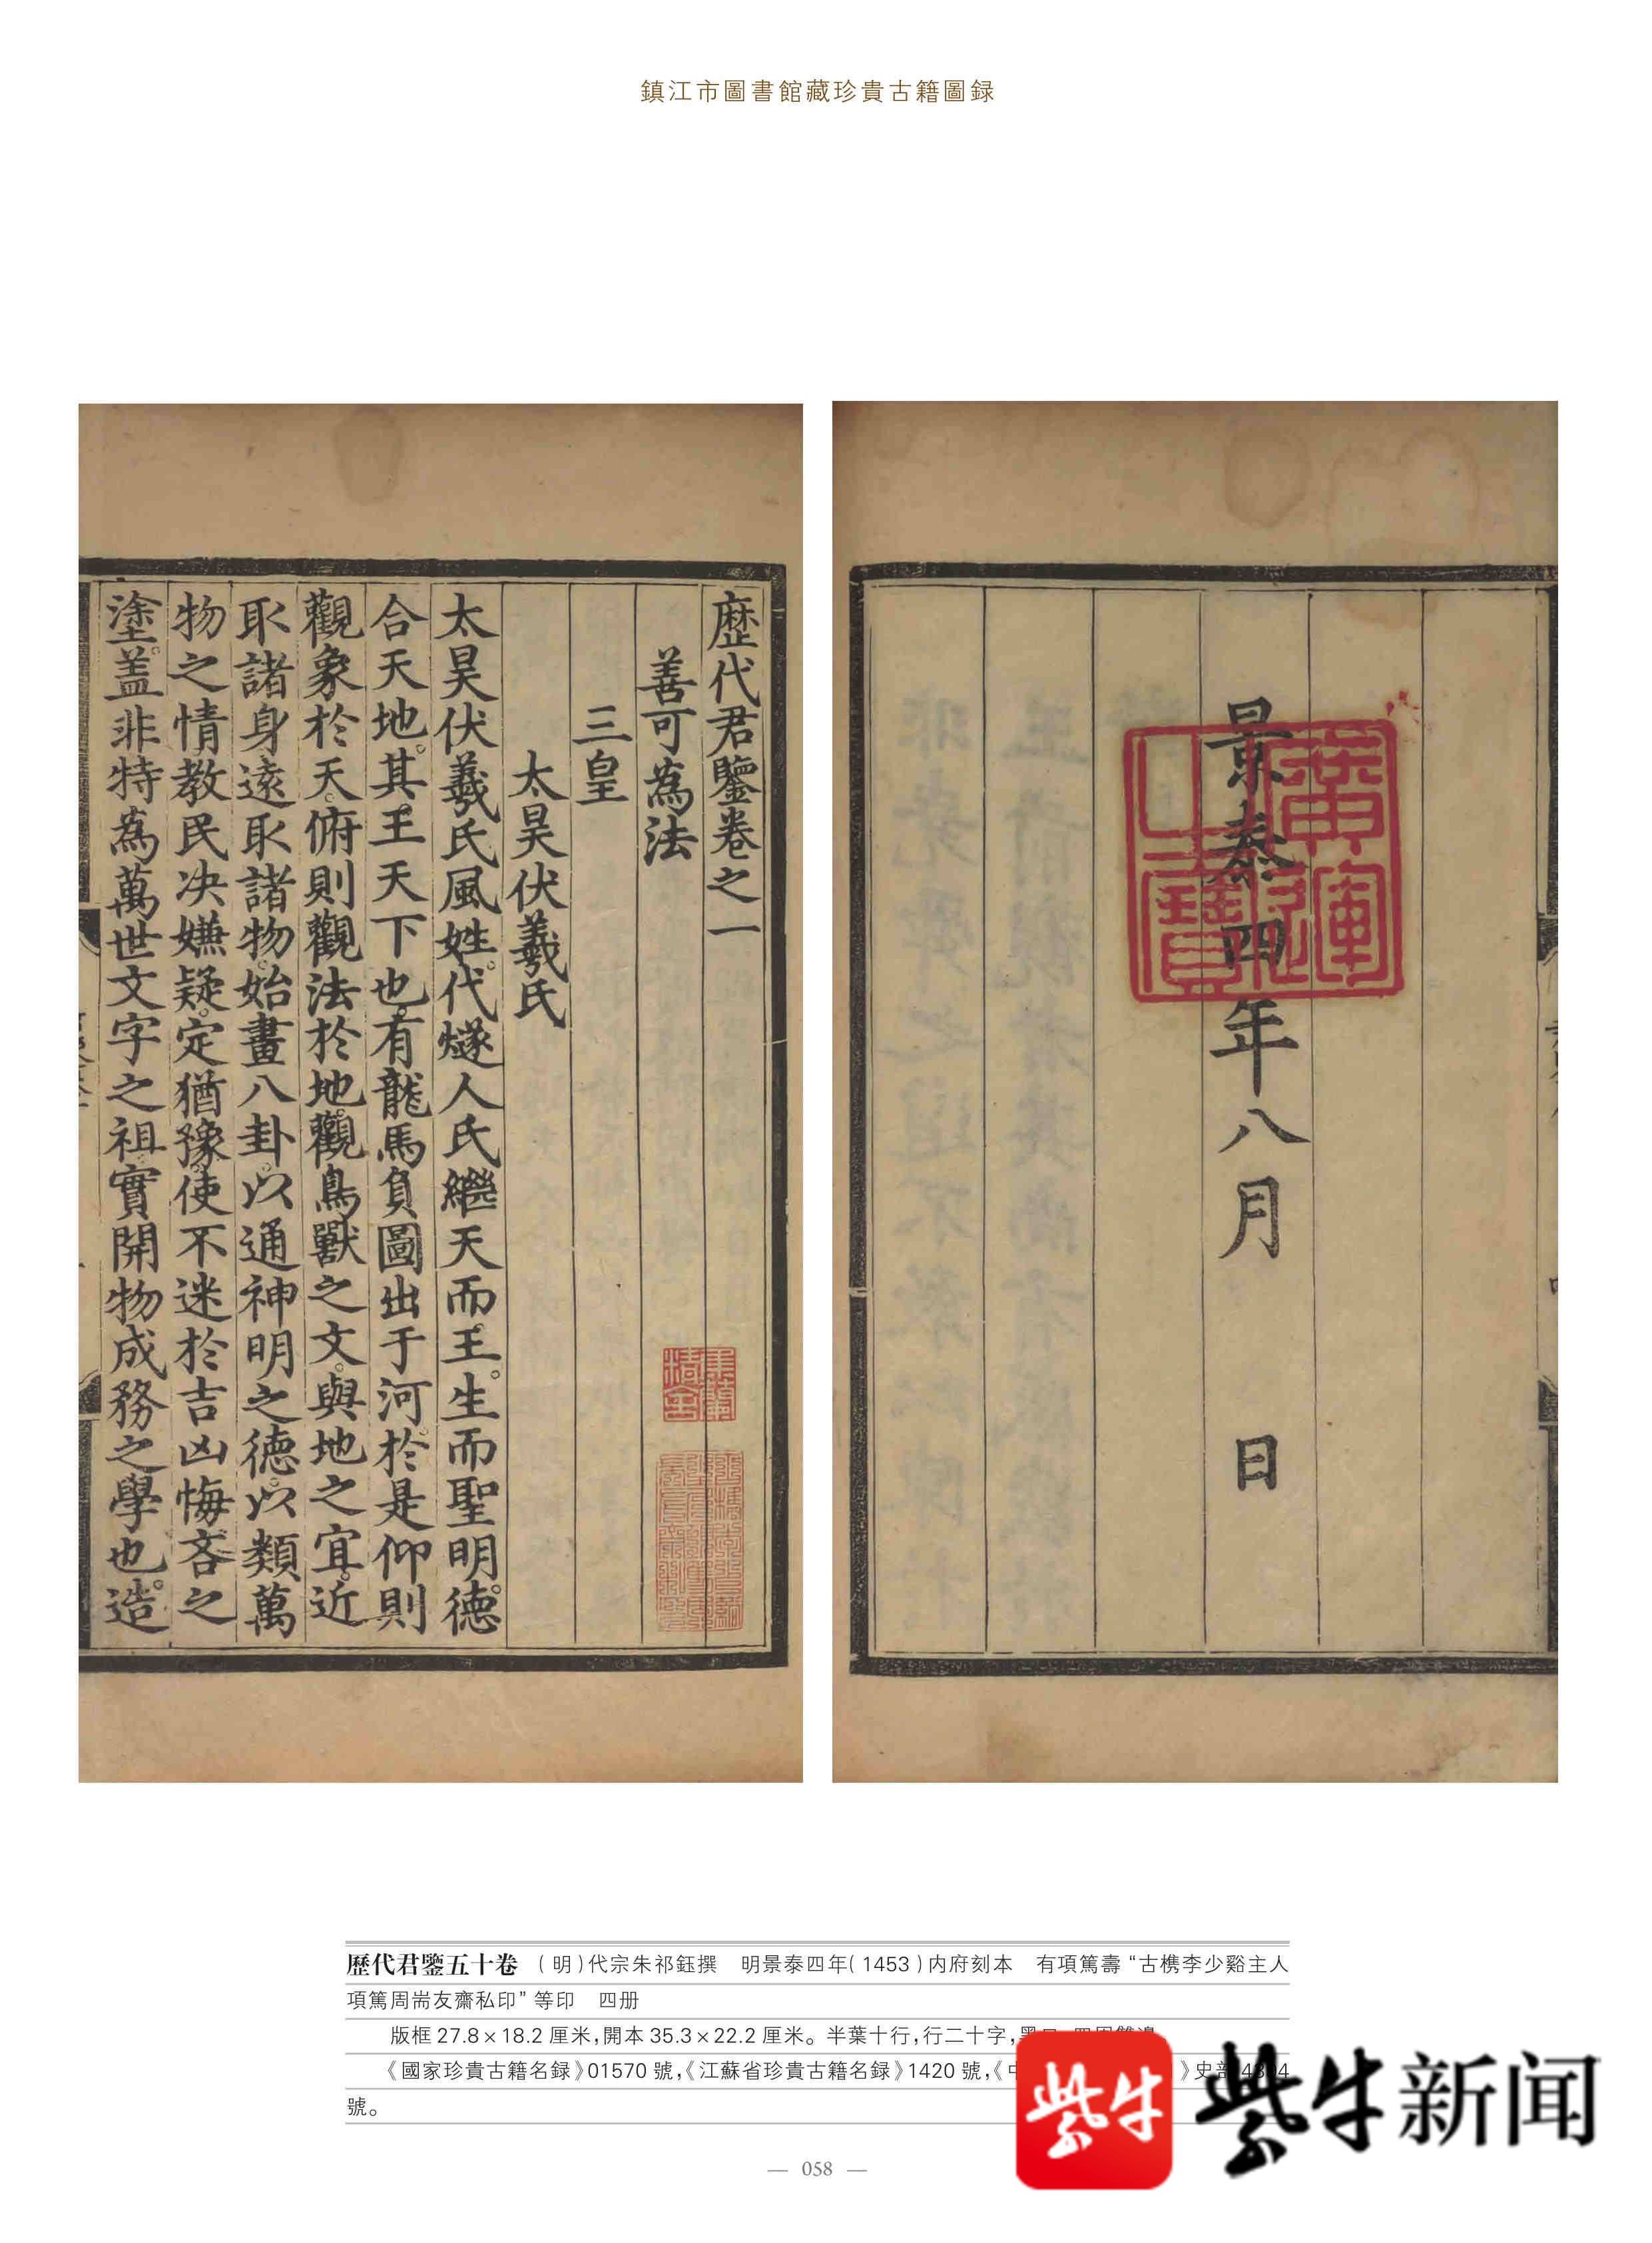 鎮江市圖書館藏珍貴古籍圖録
景泰四年八月　日
廣運之寶
歷代君鑒卷之一
善可為法
三皇
太昊伏羲氏
太昊伏羲氏風姓代燧人氏繼天而王生而聖明德
合天地其王天下也有龍馬負圖出于河於是仰則
觀象於天俯則觀法於地觀鳥獸之文與地之宜近
取諸身遠取諸物始畫八卦以通神明之德以類萬
物之情教民决嫌疑定猶豫使不迷於吉凶悔吝之
塗蓋非特為萬世文字之祖實開物成務之學也造
歷代君鑒五十卷 （明）代宗朱祁鈺撰 明景泰四年（1453）内府刻本 有項篤壽“古檇李少谿主人
項篤周耑友齋私印”等印 四册
版框 27.8×18.2 厘米，開本 35.3×22.2 厘米。半葉十行，行二十字，
《國家珍貴古籍名録》01570 號，《江蘇省珍貴古籍名録》1420 號，《中 》史部
號。
— 058 —
紫牛
紫牛新闻